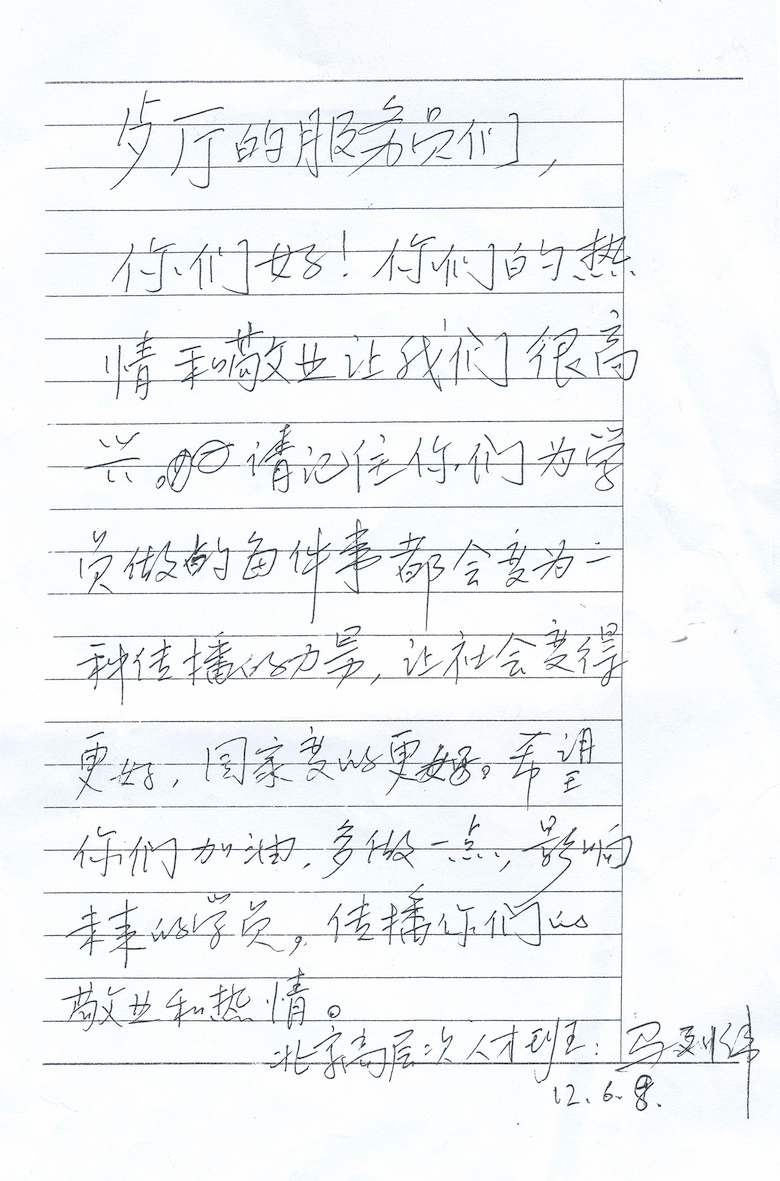 歺厅的服务员们,
你们好！你们的热
情和敬业让我们很高
兴。请记住你们为学
员做的每件事都会变为一
种传播的力量,让社会变得
更好,国家变的更好。希望
你们加油,多做一点,影响
未来的学员,传播你们的
敬业和热情。
北京高层次人才班:马
12.6.8.